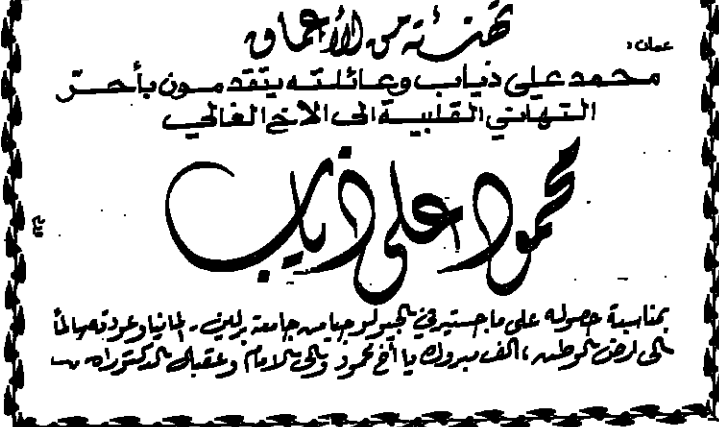 تهنئة من الأعماق
عمان:
محمد علي ذياب وعائلته يتقدمون بأحر
التهاني القلبية الى الاخ الغالي
محمود علي ذياب
بمناسبة حصوله على ماجستير في الجيولوجيا من جامعة برلين - المانيا وعودته سالماً
الى ارض الوطن، الف مبروك يا أخ محمود والى الامام وعقبال الدكتوراه